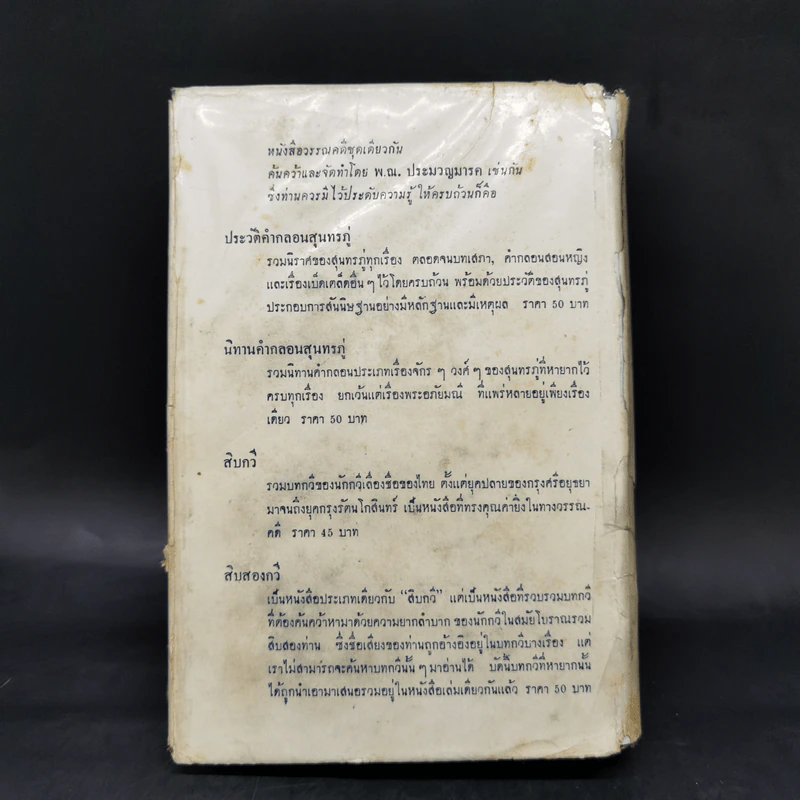 หนังสือวรรณคดีชุดเดียวกัน
ค้นคว้าและจัดทำโดย พ.ณ. ประมวญมารค เช่นกัน
ซึ่งท่านควรมีไว้ประดับความรู้ ให้ครบถ้วนก็คือ
ประวัติคำกลอนสุนทรภู่
รวมนิราศของสุนทรภู่ทุกเรื่อง ตลอดจนบทเสภา, คำกลอนสอนหญิง
และเรื่องเบ็ดเตล็ดอื่น ๆ ไว้โดยครบถ้วน พร้อมด้วยประวัติของสุนทรภู่
ประกอบการสันนิษฐานอย่างมีหลักฐานและมีเหตุผล ราคา 50 บาท
นิทานคำกลอนสุนทรภู่
รวมนิทานคำกลอนประเภทเรื่องจักร ๆ วงศ์ ๆ ของสุนทรภู่ที่หายากไว้
ครบทุกเรื่อง ยกเว้นแต่เรื่องพระอภัยมณี ที่แพร่หลายอยู่เพียงเรื่อง
เดียว ราคา 50 บาท
สิบกวี
รวมบทกวีของนักกวีเลื่องชื่อของไทย ตั้งแต่ยุคปลายของกรุงศรีอยุธยา
มาจนถึงยุคกรุงรัตนโกสินทร์ เป็นหนังสือที่ทรงคุณค่ายิ่งในทางวรรณ-
คดี ราคา 45 บาท
สิบสองกวี
เป็นหนังสือประเภทเดียวกับ “สิบกวี” แต่เป็นหนังสือที่รวบรวมบทกวี
ที่ต้องค้นคว้าหามาด้วยความยากลำบาก ของนักกวีในสมัยโบราณรวม
สิบสองท่าน ซึ่งชื่อเสียงของท่านถูกอ้างอิงอยู่ในบทกวีบางเรื่อง แต่
เราไม่สามารถจะค้นหาบทกวีนั้น ๆ มาอ่านได้ บัดนี้บทกวีที่หายากนั้น
ได้ถูกนำเอามาเสนอรวมอยู่ในหนังสือเล่มเดียวกันแล้ว ราคา 50 บาท